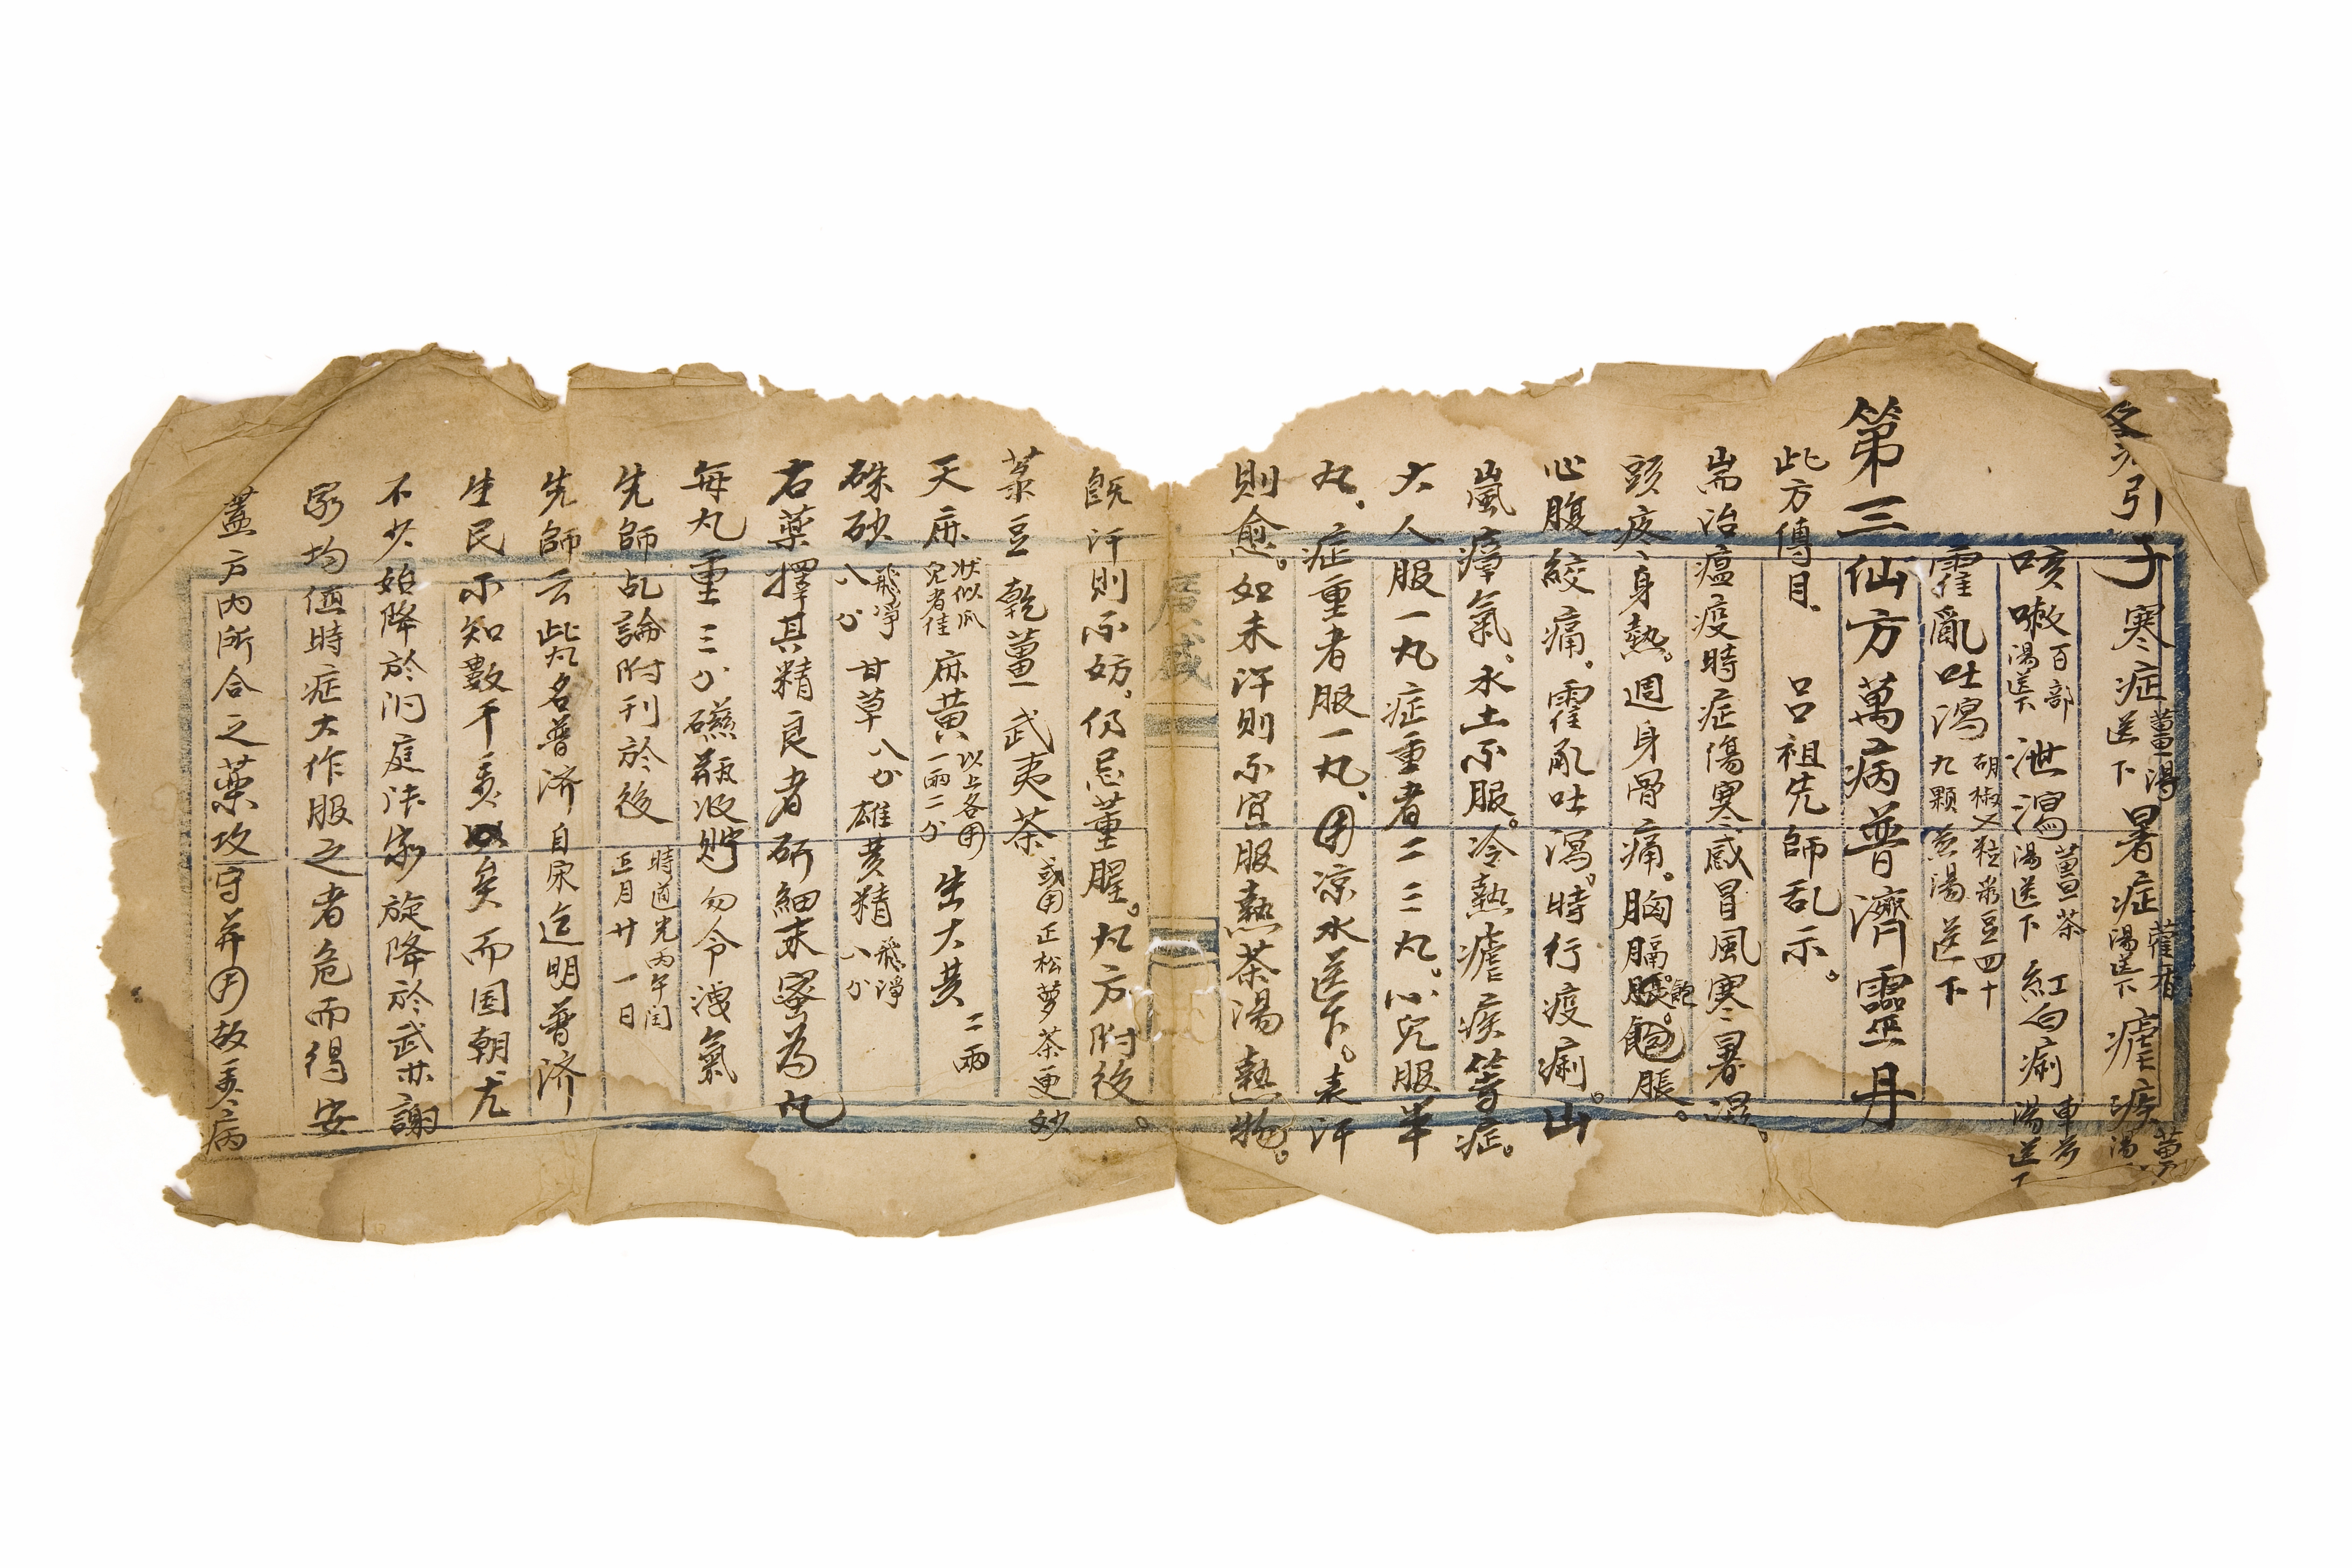 引子寒症薑湯送下暑症藿香湯送下瘧疾薑湯
咳嗽百部湯送下泄瀉薑茶湯送下紅白痢車前湯送下
霍亂吐瀉胡椒粒菉豆四十九顆煎湯送下
第三仙方萬病普濟靈丹
此方傳自呂祖先師乩示。
耑治瘟疫時症傷寒感冒風寒暑濕。
頭疼、身熱。週身骨痛。胸膈飽脹。
心腹絞痛。霍乱吐瀉。時行疫痢。山
嵐瘴氣。水土不服。冷熱瘧疾等症。
大人服一丸症重者二三丸。小兒服半
丸、症重者服一丸、用涼水送下。表汗
則愈。如未汗則不宜服熱茶湯熱物。
既汗則不妨。仍忌葷腥。丸方附後。
菉豆 乾薑 武夷茶或用正松萝茶更妙
天麻狀似瓜兒者佳 麻黄以上各用一兩二分 生大黄二兩
硃砂飛凈八分 甘草八分 雄黄精飛淨八分
右藥擇其精良者研細末蜜為丸
每丸重三分礠瓶收貯勿令洩氣
先師乩論附刊於後時道光丙午閏正月廿一日
先師云此丸名普济自宋迄明普济
生民不知數千矣而国朝尤
不少始降於洞庭宋旋降於武林謝
家均值時症大作服之者危而得安
蓋方内所合之藥攻守并用故病